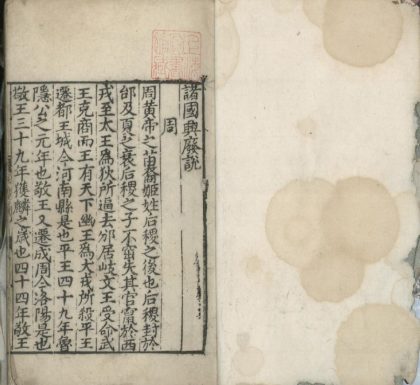 諸國興廢說
周
周黃帝之苗裔姬姓后稷之後也后稷封於
邰及夏之衰后稷之子不窋失其官竄於西
戎至太王爲狄所逼去邠居岐文王受命武
王克商而王有天下幽王爲犬戎所殺平王
遷都王城今河南縣是也平王四十九年魯
隱公之元年也敬王又遷成周今洛陽是也
敬王三十九年獲麟之歲也四十四年敬王